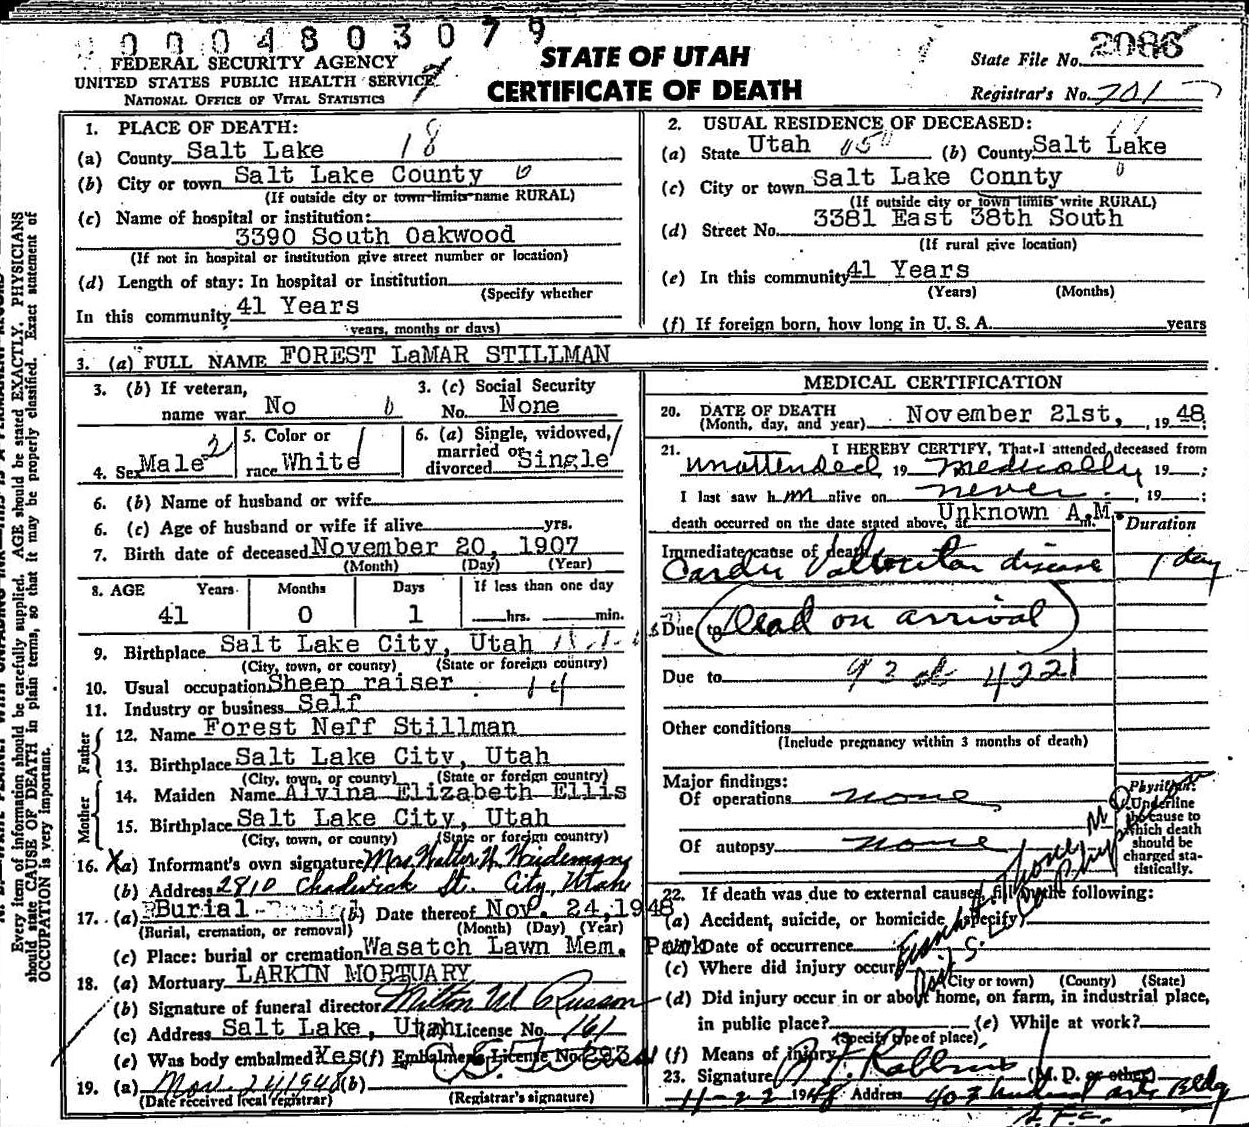 0004803079
FEDERAL SECURITY AGENCY
UNITED STATES PUBLIC HEALTH SERVICE
NATIONAL OFFICE OF VITAL STATISTICS
STATE OF UTAH
CERTIFICATE OF DEATH
State File No. 2086
Registrar's No. 701
1. PLACE OF DEATH: 18
(a) County Salt Lake
(b) City or town Salt Lake County 0
(If outside city or town limits name RURAL)
(c) Name of hospital or institution:
3390 South Oakwood
(If not in hospital or institution give street number or location)
(d) Length of stay: In hospital or institution
(Specify whether
In this community 41 Years
years, months or days)
2. USUAL RESIDENCE OF DECEASED:
(a) State Utah (b) County Salt Lake
(c) City or town Salt Lake Connty 0
(If outside city or town limits write RURAL)
(d) Street No. 3381 East 38th South
(If rural give location)
(e) In this community 41 Years
(Years) (Months)
(f) If foreign born, how long in U. S. A. years
3. (a) FULL NAME FOREST LaMAR STILLMAN
3. (b) If veteran, name war No
3. (c) Social Security No. None
4. Sex Male 2
5. Color or race White 1
6. (a) Single, widowed, married or divorced Single 1
6. (b) Name of husband or wife
6. (c) Age of husband or wife if alive yrs.
7. Birth date of deceased November 20, 1907
(Month) (Day) (Year)
8. AGE Years Months Days If less than one day
41 0 1 hrs. min.
9. Birthplace Salt Lake City, Utah
(City, town, or county) (State or foreign country)
10. Usual occupation Sheep raiser 14
11. Industry or business Self
Father
12. Name Forest Neff Stillman
13. Birthplace Salt Lake City, Utah
(City, town, or county) (State or foreign country)
Mother
14. Maiden Name Alvina Elizabeth Ellis
15. Birthplace Salt Lake City, Utah
(City, town, or county) (State or foreign country)
16. X (a) Informant's own signature Mrs Walter H.
(b) Address 2910 Chadwick St. City, Utah
17. (a) Burial (b) Date thereof Nov. 24, 1948
(Burial, cremation, or removal) (Month) (Day) (Year)
(c) Place: burial or cremation Wasatch Lawn Mem. Park
18. (a) Mortuary LARKIN MORTUARY
(b) Signature of funeral director Milton W Russon
(c) Address Salt Lake, Utah (d) License No. 161
(e) Was body embalmed Yes (f) Embalmers License No.
19. (a) Nov. 24 1948 (b)
(Date received local registrar) (Registrar's signature)
MEDICAL CERTIFICATION
20. DATE OF DEATH
(Month, day, and year) November 21st, 1948
21. I HEREBY CERTIFY, That I attended deceased from
unattended 19 medically 19 ;
I last saw him alive on never , 19 ;
death occurred on the date stated above, at Unknown A.M. m.
Duration
Immediate cause of death
Cardio disease 1 day
Due to (Dead on arrival)
Due to 4221
Other conditions
(Include pregnancy within 3 months of death)
Major findings:
Of operations none
Of autopsy none
Physician: Underline the cause to which death should be charged statistically.
22. If death was due to external causes, fill in the following:
(a) Accident, suicide, or homicide (specify)
(b) Date of occurrence
(c) Where did injury occur
(City or town) (County) (State)
(d) Did injury occur in or about home, on farm, in industrial place,
in public place? (e) While at work?
(Specify type of place)
(f) Means of injury
23. Signature (M. D. or other)
11-22 1948 Address 403 Bldg
Every item of information should be carefully supplied. AGE should be stated EXACTLY. PHYSICIANS
should state CAUSE OF DEATH in plain terms, so that it may be properly classified. Exact statement of
OCCUPATION is very important.